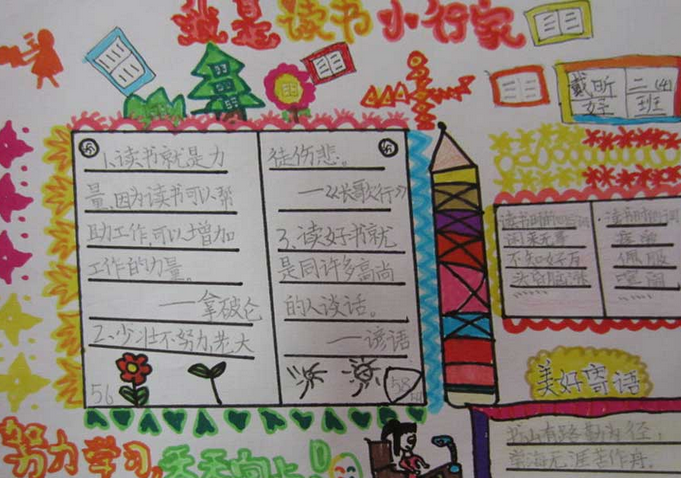 我是读书小行家
戴昕妤
二(4)班
1.读书就是力
量,因为读书可以帮
助工作,可以增加
工作的力量。
——拿破仑
2、少壮不努力,老大
56
徒伤悲。
——《长歌行》
3.读好书就
是同许多高尚
的人谈话。
——谚语
58
读书时的
闲来无事
不知好歹
头昏脑涨
读书时的词
佩服
美好寄语
书山有路勤为径,
学海无涯苦作舟。
努力学习,天天向上!